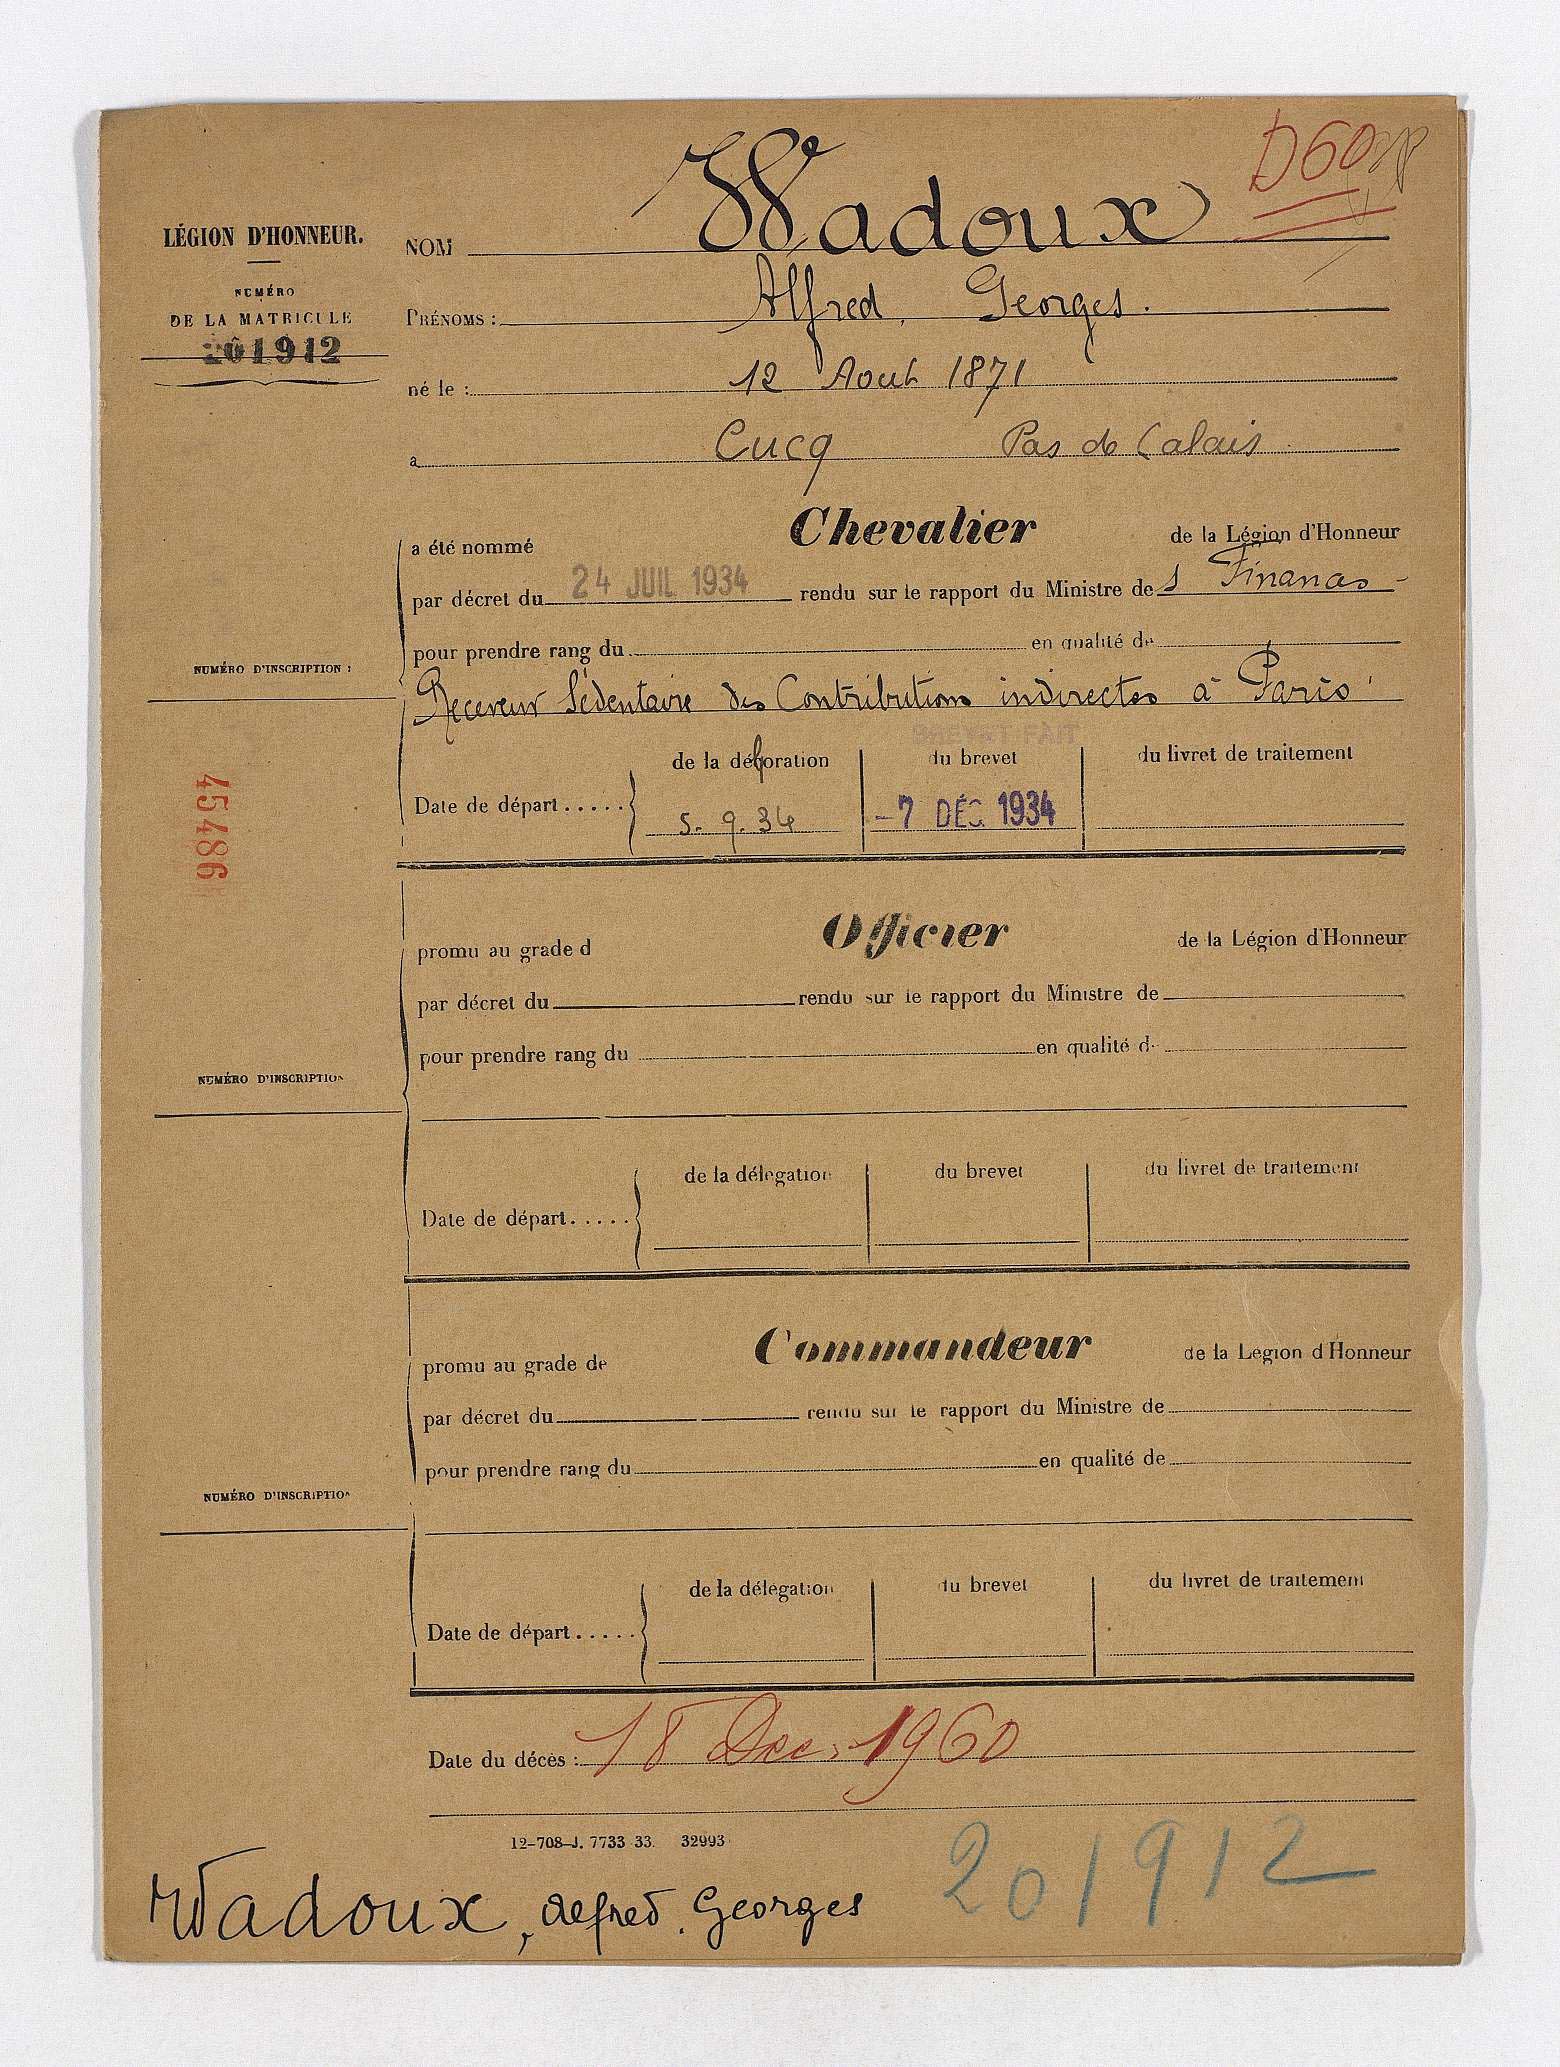 D60
LÉGION D'HONNEUR.
NUMÉRO
DE LA MATRICULE
201912
NOM Wadoux
PRÉNOMS : Alfred, Georges.
né le : 12 Aout 1871
a Cucq Pas de Calais
a été nommé Chevalier de la Légion d'Honneur
par décret du 24 JUIL 1934 rendu sur le rapport du Ministre des Finances
pour prendre rang du en qualité de
NUMÉRO D'INSCRIPTION :
Receveur Sédentaire des Contributions indirectes à Paris
BREVET FAIT
de la décoration du brevet du livret de traitement
Date de départ.....
5. 9. 34 -7 DÉC 1934
45486
promu au grade d Officier de la Légion d'Honneur
par décret du rendu sur le rapport du Ministre de
pour prendre rang du en qualité d
NUMÉRO D'INSCRIPTION
de la délégation du brevet du livret de traitement
Date de départ.....
promu au grade de Commandeur de la Légion d'Honneur
par décret du rendu sur le rapport du Ministre de
pour prendre rang du en qualité de
NUMÉRO D'INSCRIPTION
de la délégation du brevet du livret de traitement
Date de départ.....
Date du décès : 18 Dec. 1960
12-708-J. 7733-33. 32993
201912
Wadoux, Alfred. Georges